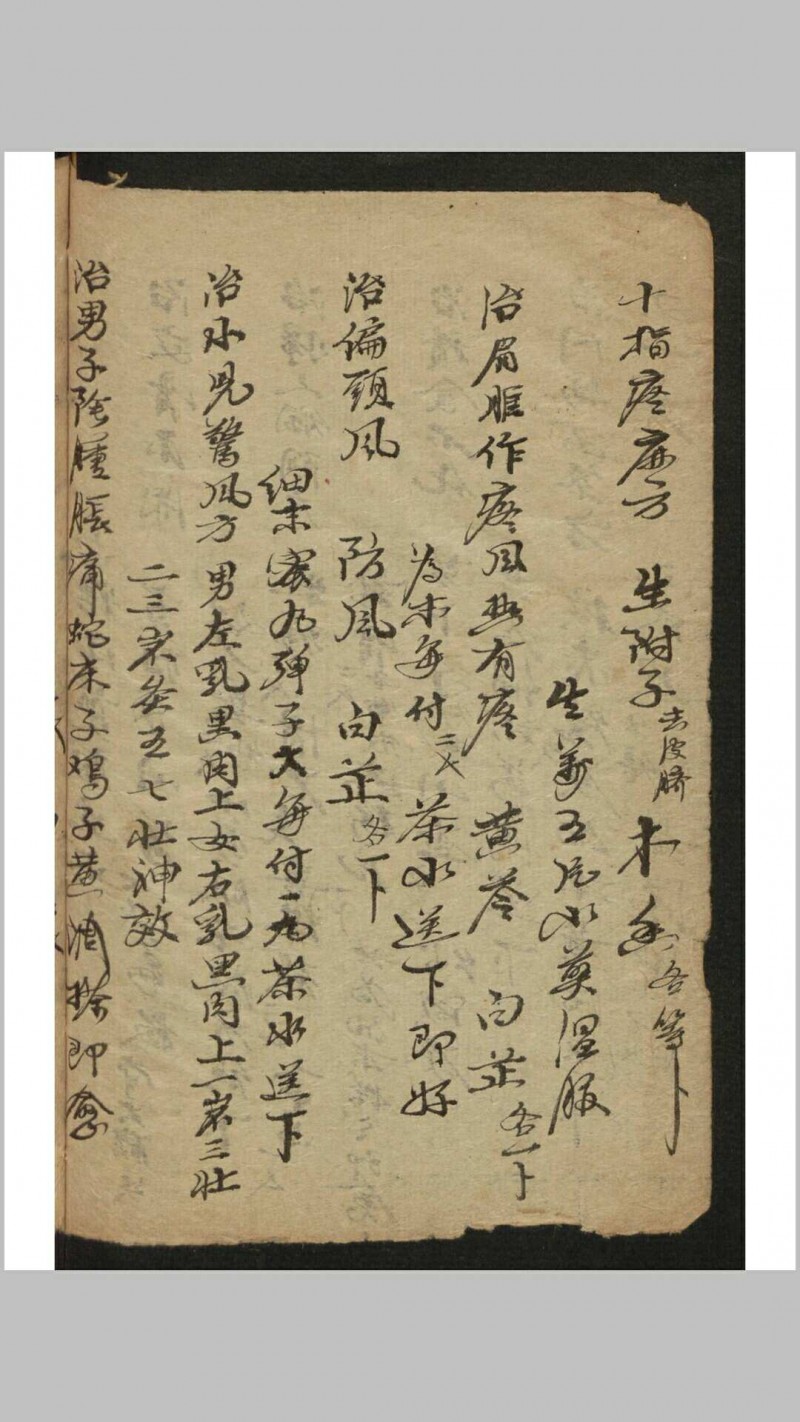 十指疼麻方　生附子去皮臍　木香各等卜
生姜五片水煎温服
治眉眶作疼風熱有痰　黄芩　白芷各一卜
為末每付二文茶水送下即好
治偏頭風　防風　白芷各一卜
細末蜜丸弹子大每付一丸茶水送下
治小児驚风方　男左乳黒肉上女右乳黒肉上一岁三壮
二三岁灸五七壮神效
治男子陰腫脹痛蛇床子鸡子黄調搽即愈